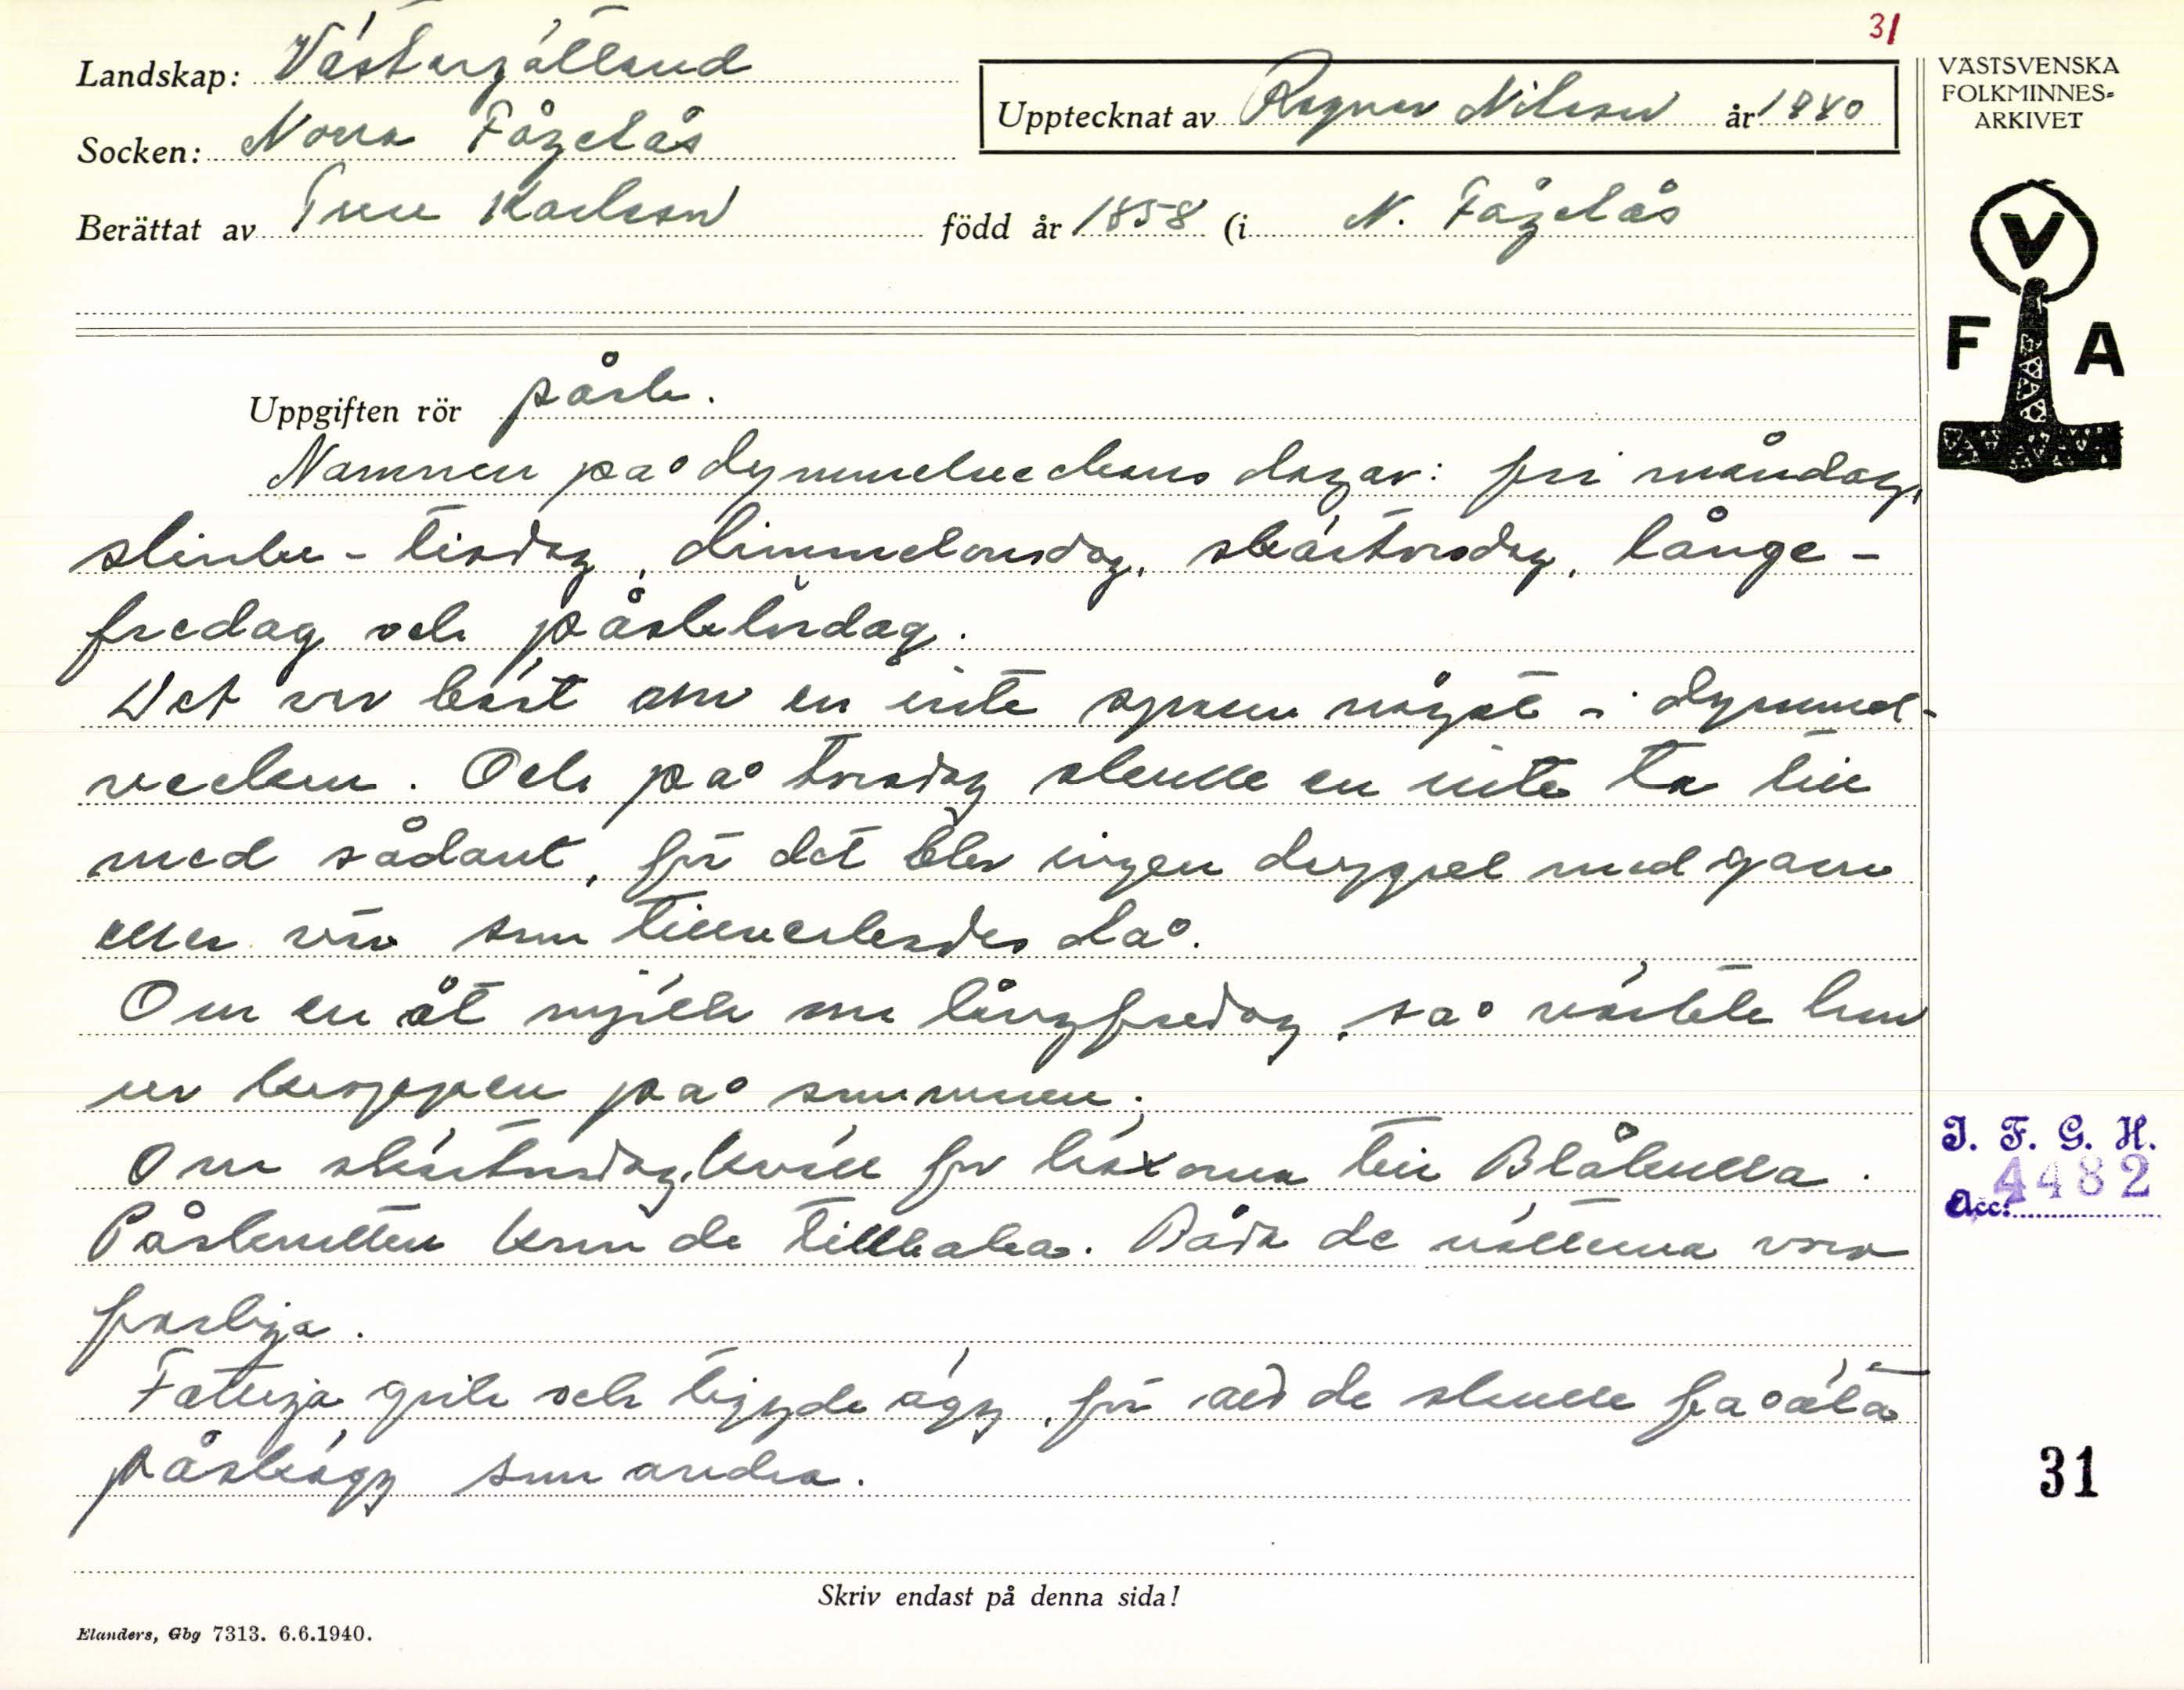 31
Landskap: Västergötland
Socken: Norra Fågelås
Upptecknat av Ragnar Nilsson år 1940
VÄSTSVENSKA
FOLKMINNES-
ARKIVET
Berättat av Ture Karlsson född år 1858 (i N. Fågelås
V
F A
Uppgiften rör påsk.
Namnen på dymmelveckans dagar: fri måndag,
stinke-tisdag, dimmelonsdag, skärtorsdag, långe-
fredag och påskelördag.
Det var bäst om en inte spann något i dymmel-
veckan. Och på torsdag skulle en inte ta till
med sådant, för det blev ingen drygsel med garn
eller väv som tillverkades då.
Om en åt mjölk om långfredag, så värkte hon
ur kroppen på sommaren.
Om skärtorsdagkväll for häxorna till Blåkulla.
Påsknatten kom de tillbaka. Båda de nätterna vora
farliga.
Fattiga gick och tiggde ägg, för att de skulle få äta
påskägg som andra.
I. F. G. H.
Acc: 4482
31
Skriv endast på denna sida!
Elanders, Gbg 7313. 6.6.1940.